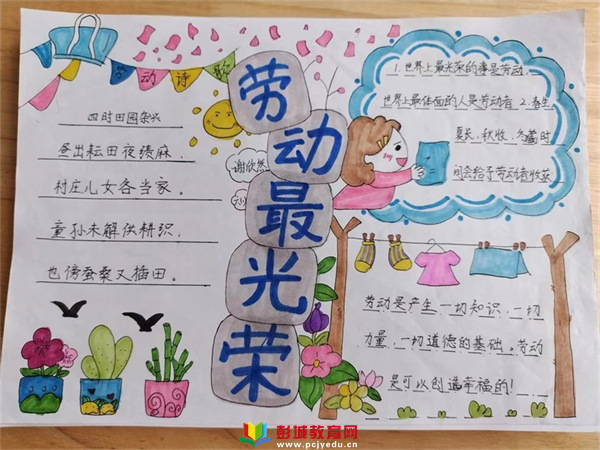 劳动诗歌
四时田园杂兴
昼出耘田夜绩麻,
村庄儿女各当家.
童孙未解供耕织,
也傍蚕桑又插田.
劳动最光荣
谢欣然
1.世界上最光荣的事是劳动.
世界上最体面的人是劳动者 2.春生
夏长,秋收,冬藏时
间会给予劳动者收获
劳动是产生一切知识、一切
力量、一切道德的基础。劳动
是可以创造幸福的!
彭城教育网
www.pcjyedu.cn